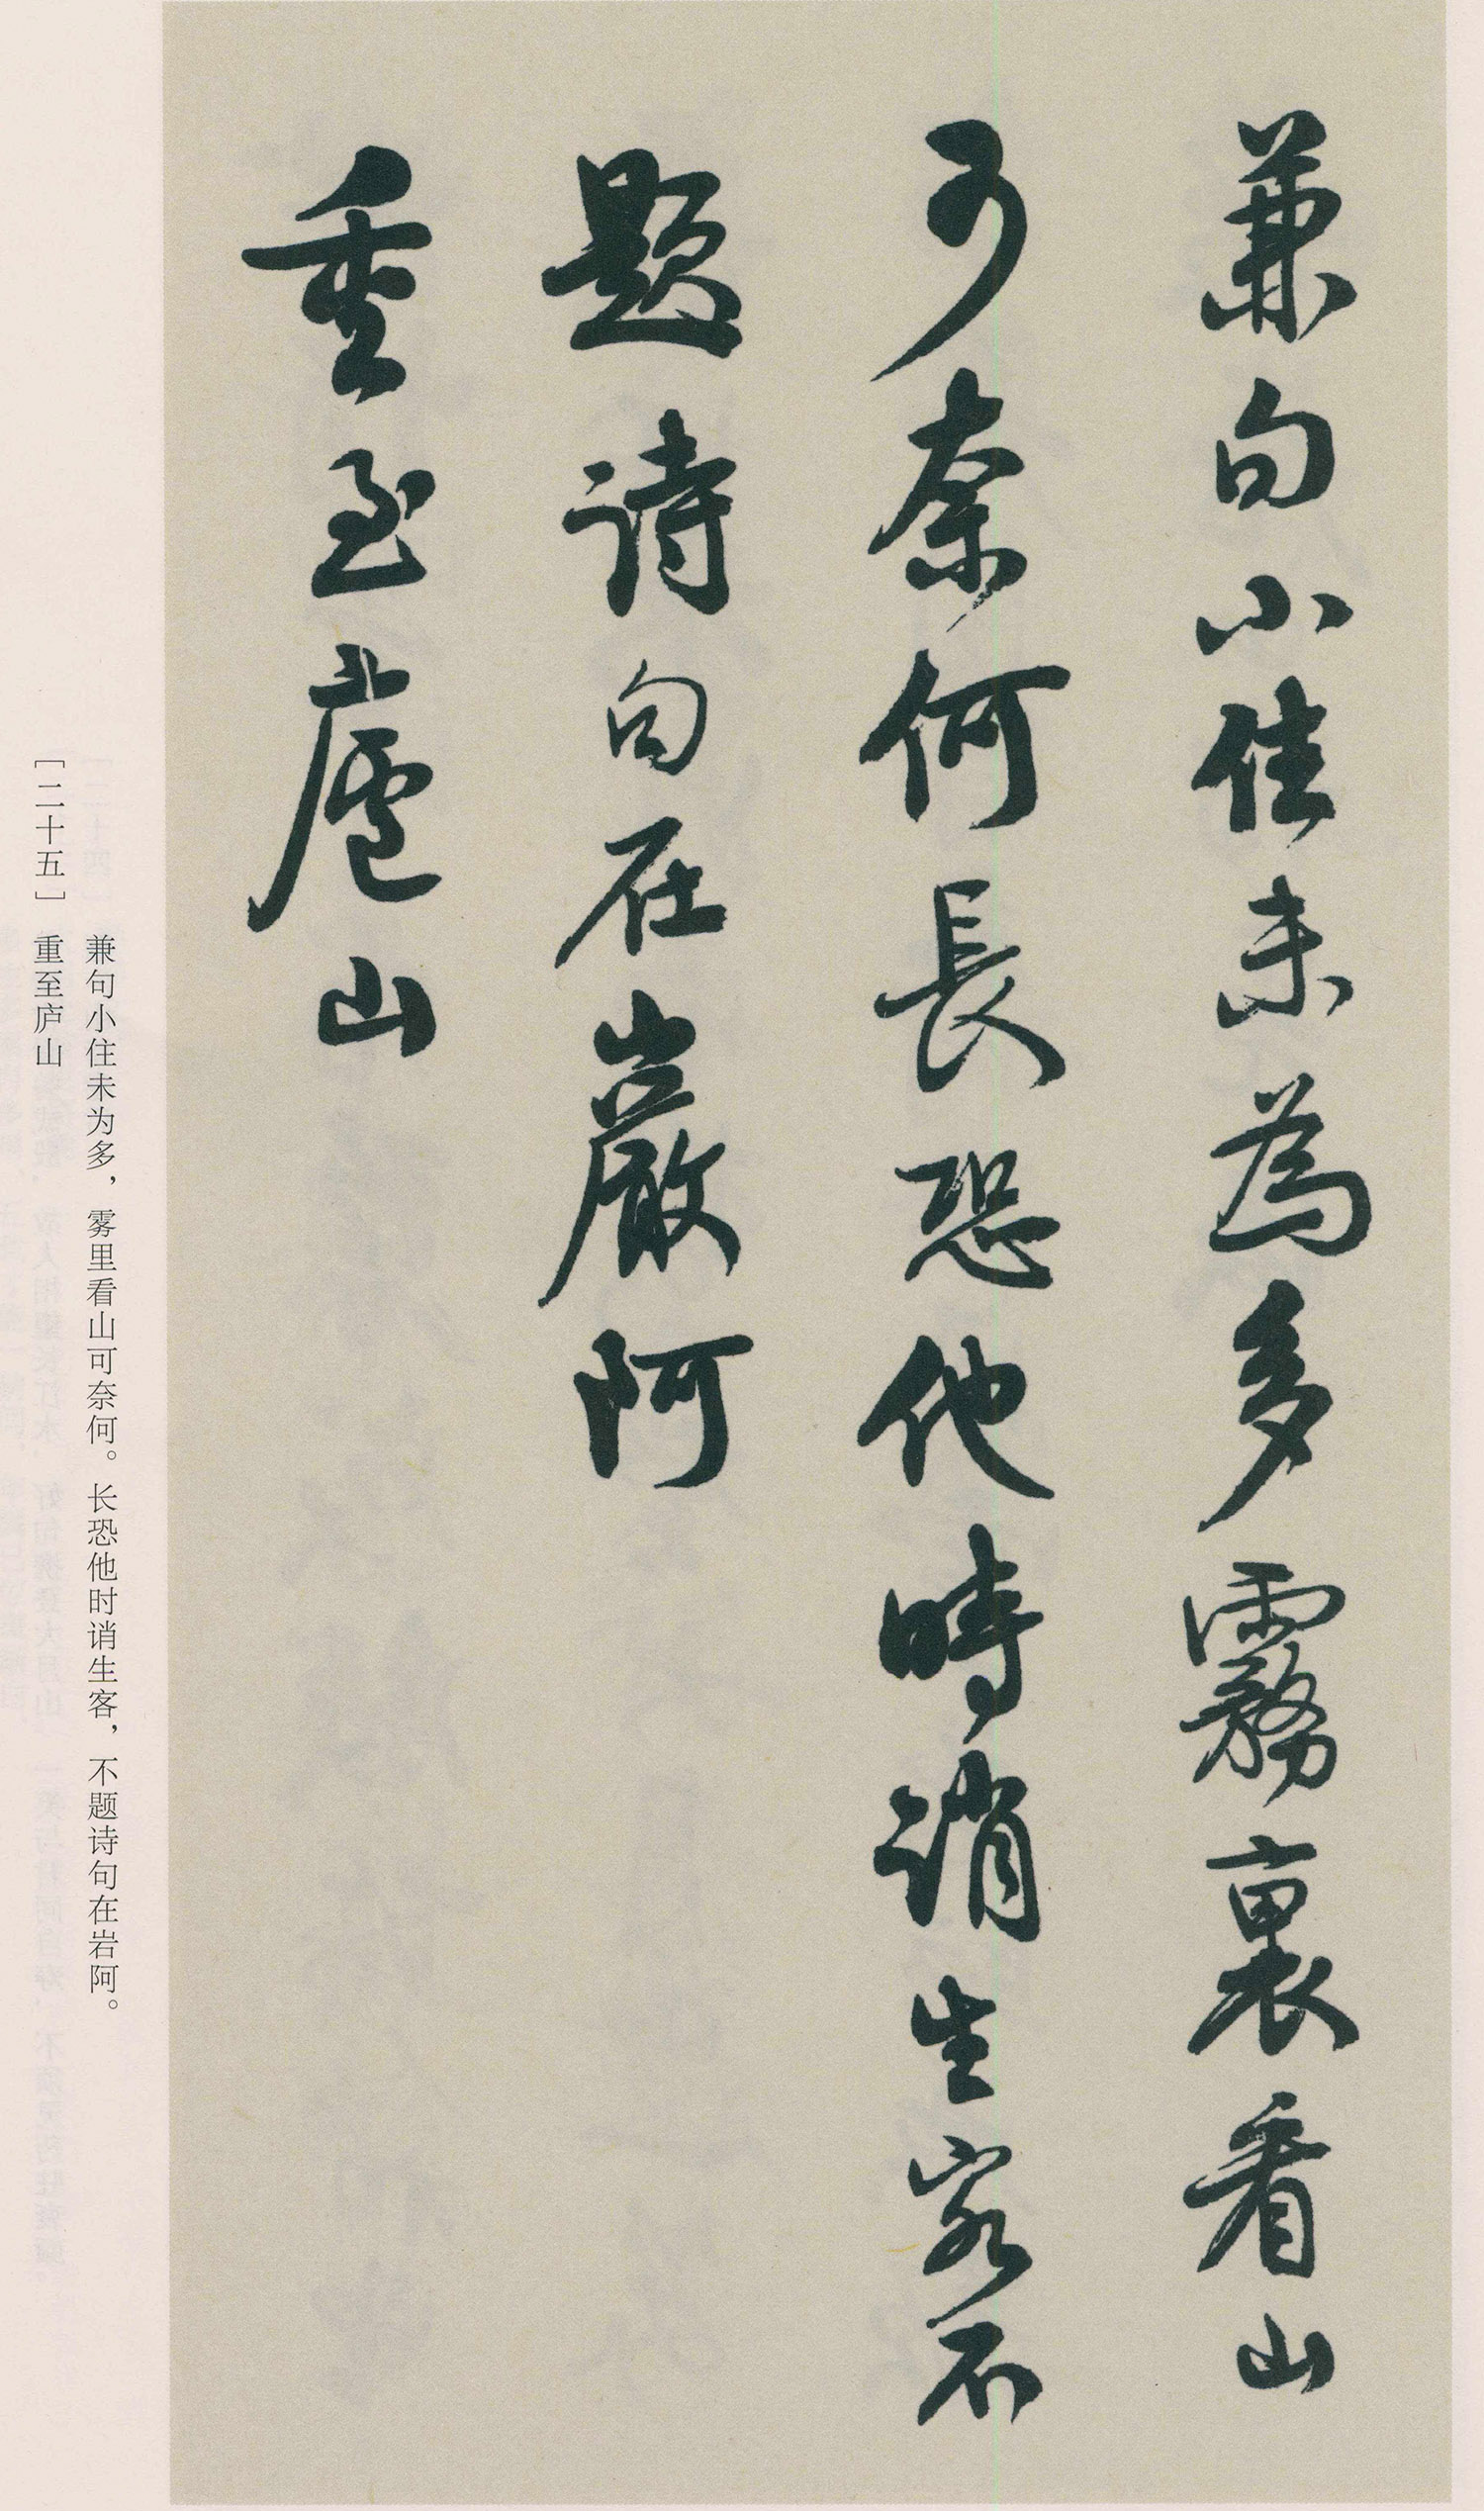 兼旬小住未為多霧裏看山
可奈何長恐他時誚生客不
題詩句在巖阿
重至廬山
兼句小住未为多，雾里看山可奈何。长恐他时诮生客，不题诗句在岩阿。
［二十五］ 重至庐山